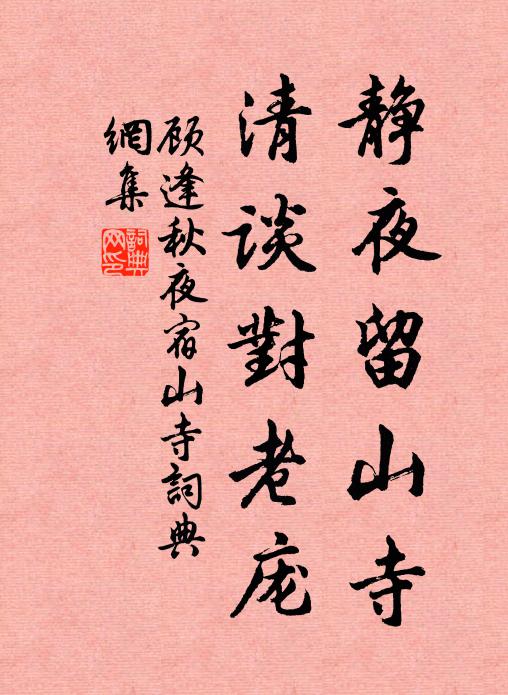 静夜留山寺
清談對老庞
顾逢秋夜宿山寺詞典
網集
詞典網印